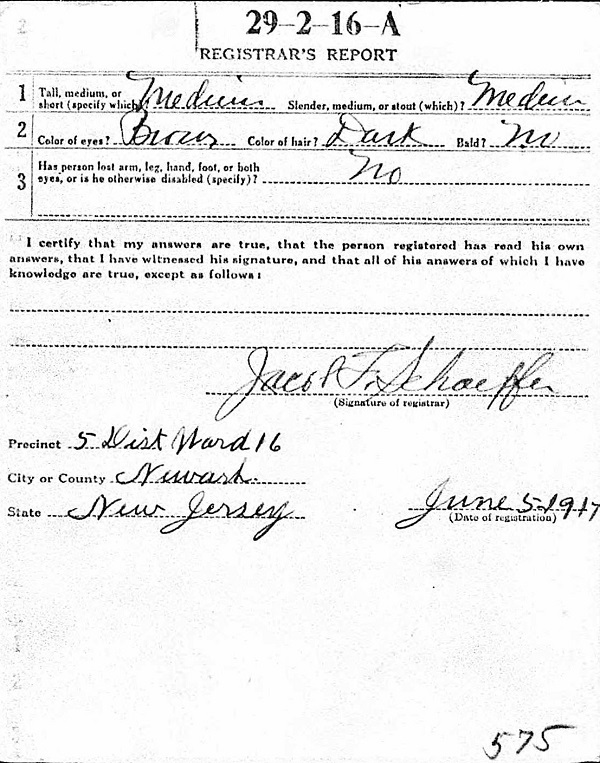 29-2-16-A
REGISTRAR'S REPORT
1 Tall, medium, or short (specify which)? Medium Slender, medium, or stout (which)? Medium
2 Color of eyes? Brown Color of hair? Dark Bald? No
3 Has person lost arm, leg, hand, foot, or both
eyes, or is he otherwise disabled (specify)? No
I certify that my answers are true, that the person registered has read his own
answers, that I have witnessed his signature, and that all of his answers of which I have
knowledge are true, except as follows:
Jacob F. Schaeffer
(Signature of registrar)
Precinct 5 Dist Ward 16
City or County Newark.
State New Jersey June 5-1917
(Date of registration)
575